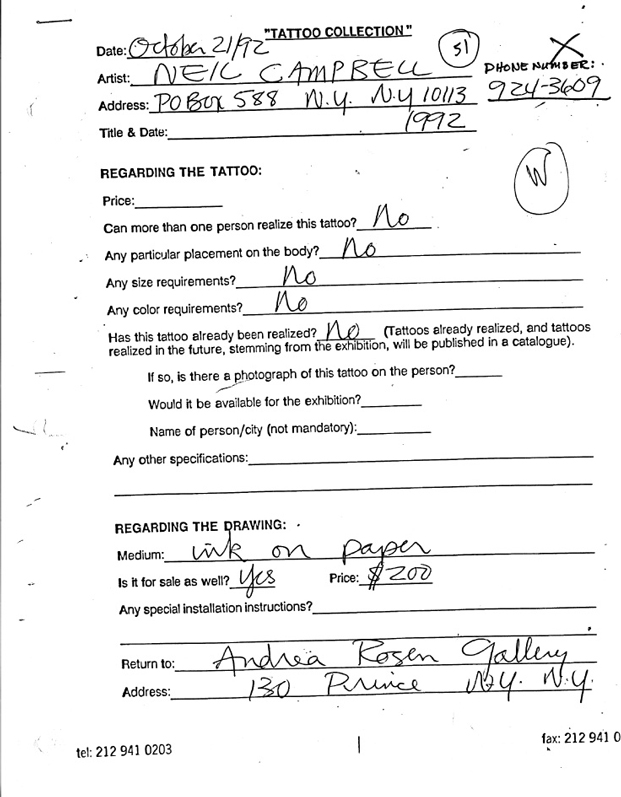 "TATTOO COLLECTION"
Date: October 21/92
51
X
Artist: NEIL CAMPBELL
PHONE NUMBER:
Address: PO BOX 588 N.Y. N.Y 10113
924-3609
Title & Date: 1992
REGARDING THE TATTOO:
W
Price:
Can more than one person realize this tattoo? No
Any particular placement on the body? No
Any size requirements? No
Any color requirements? No
Has this tattoo already been realized? No (Tattoos already realized, and tattoos
realized in the future, stemming from the exhibition, will be published in a catalogue).
If so, is there a photograph of this tattoo on the person?
Would it be available for the exhibition?
Name of person/city (not mandatory):
Any other specifications:
REGARDING THE DRAWING:
Medium: ink on paper
Is it for sale as well? yes Price: $200
Any special installation instructions?
Return to: Andrea Rosen Gallery
Address: 130 Prince N.Y. N.Y.
tel: 212 941 0203
fax: 212 941 0